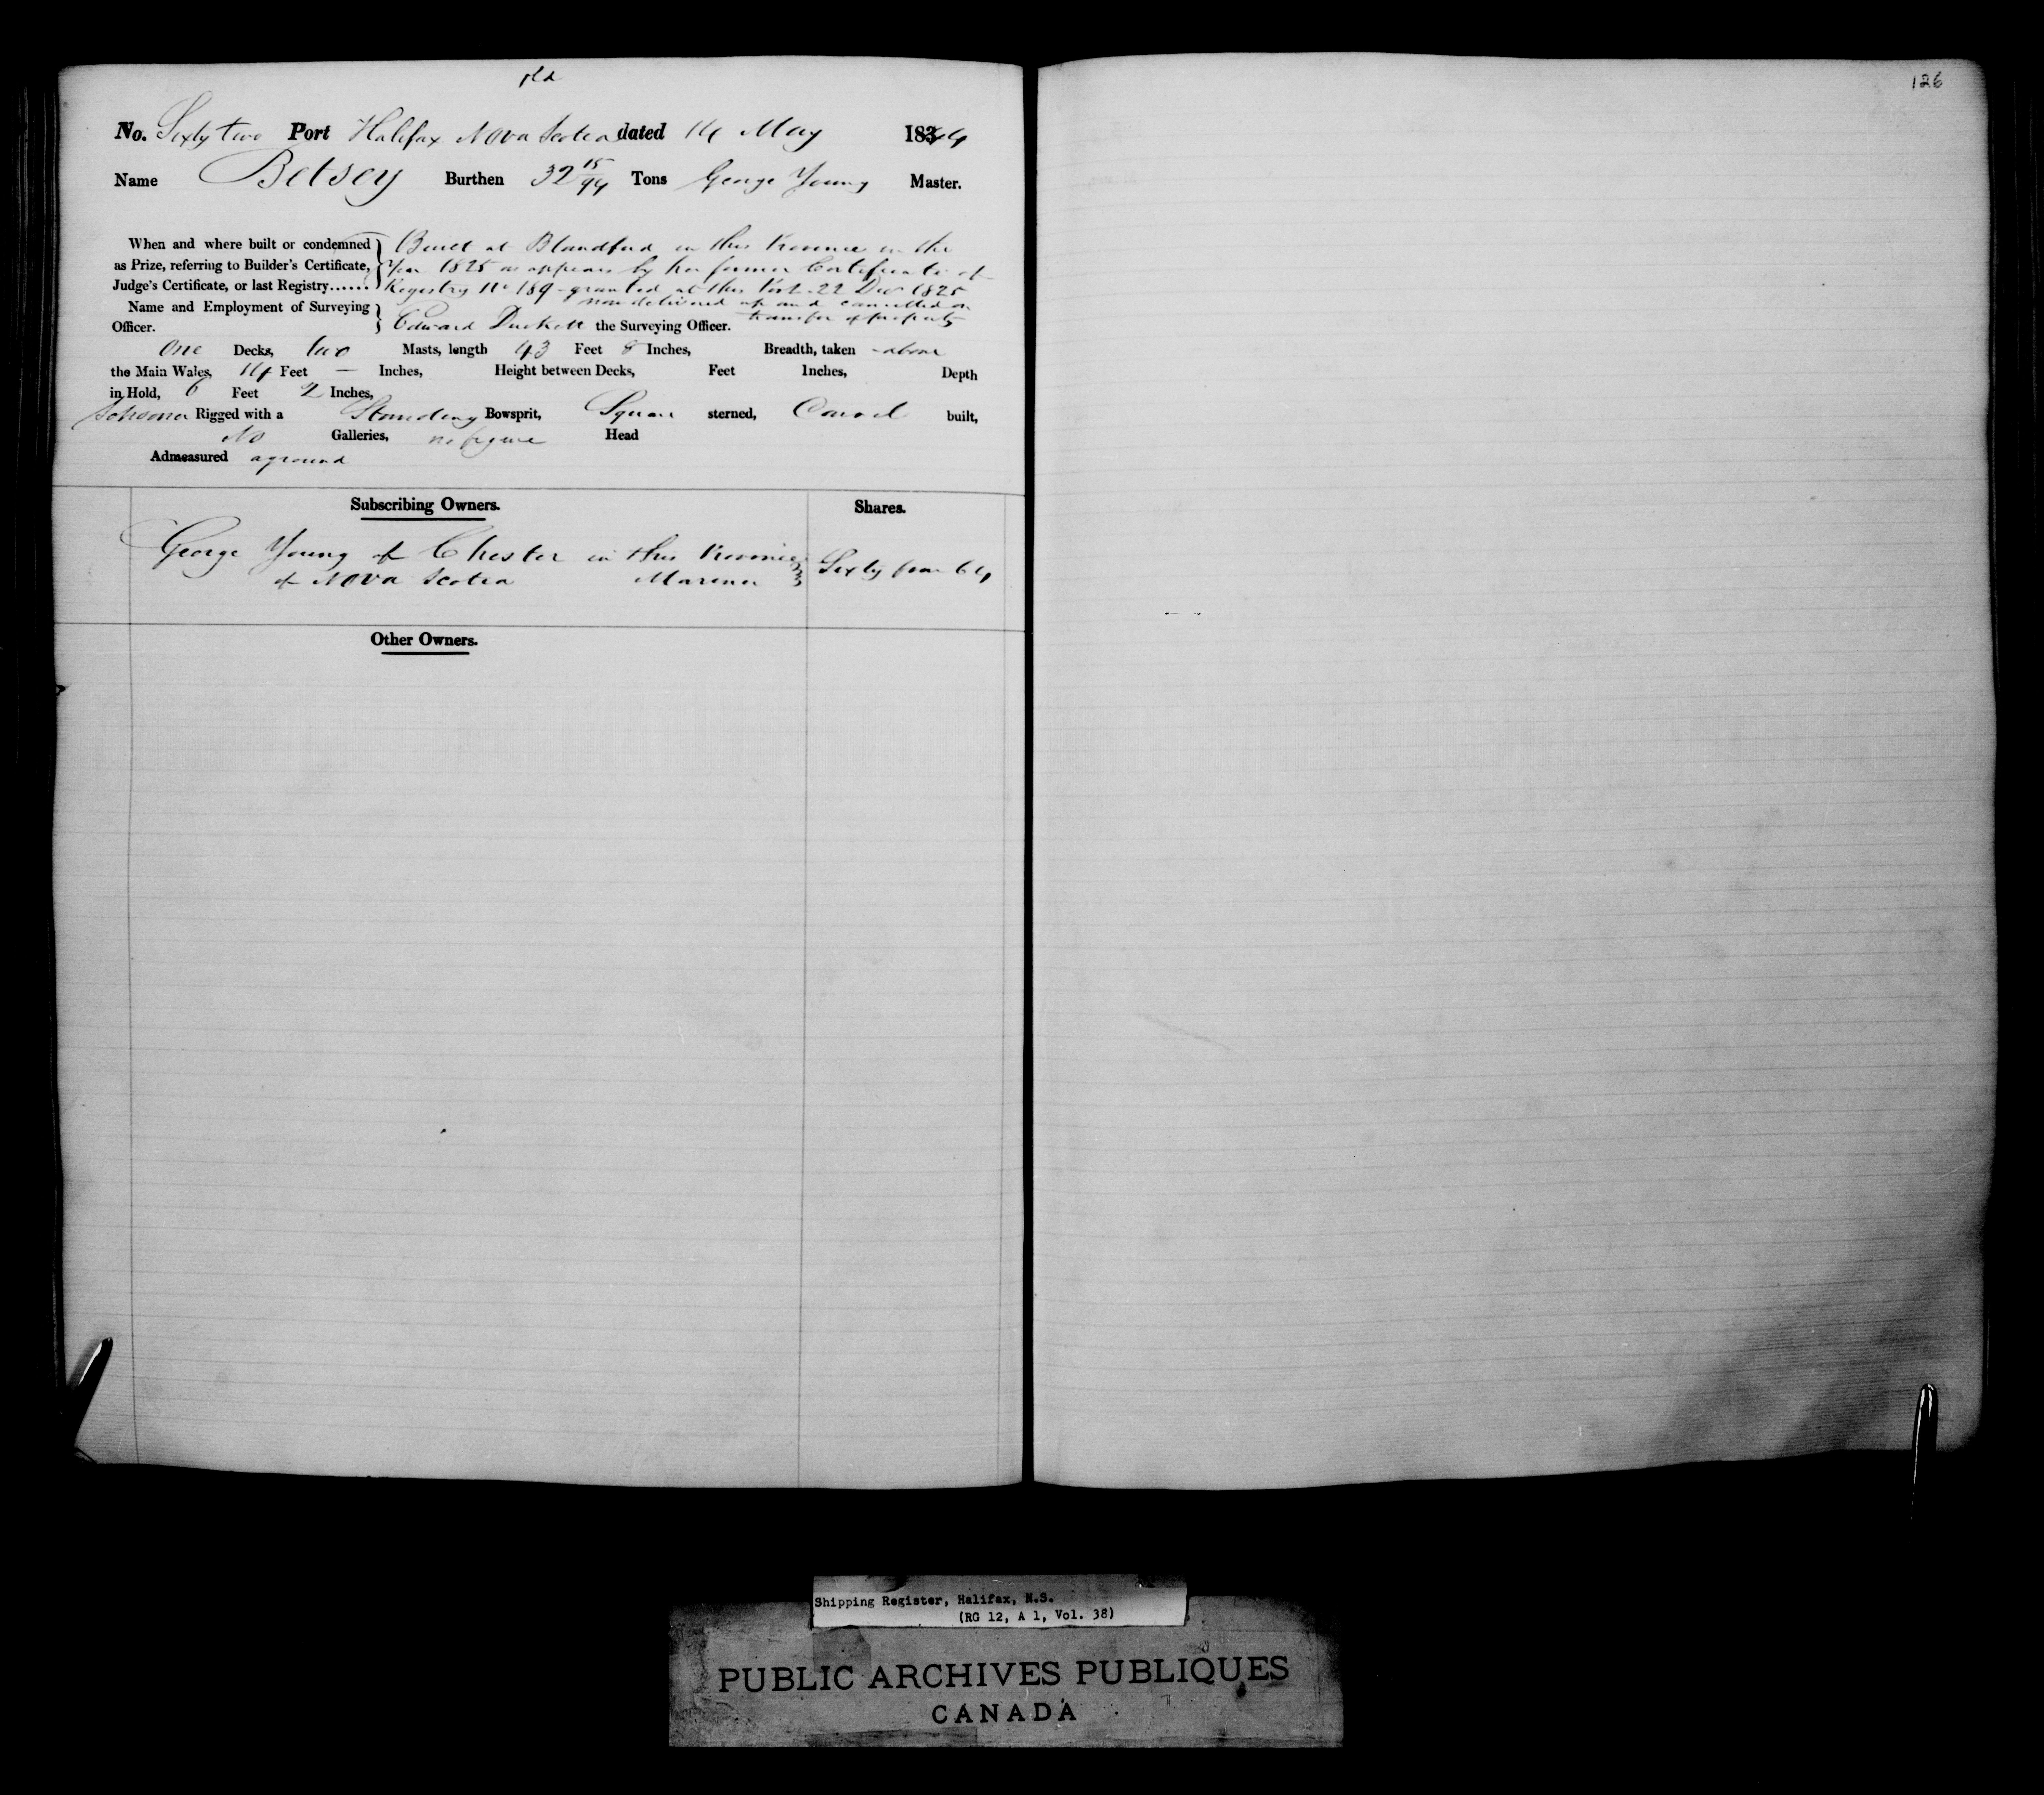 126
No. Sixty two Port Halifax Nova Scotia dated 14 May 1844
Name Betsey Burthen 32 15/94 Tons George Young Master.
When and where built or condemned as Prize, referring to Builder's Certificate, Judge's Certificate, or last Registry......
Built at Blandford in this Province in the
Year 1825 as appears by her former Certificate of
Registry No 189 granted at this Port 22 Decr 1825
now delivered up and cancelled on
transfer of property
Name and Employment of Surveying Officer.
Edward Duckett the Surveying Officer.
One Decks, two Masts, length 43 Feet 8 Inches, Breadth, taken above
the Main Wales, 14 Feet — Inches, Height between Decks, Feet Inches, Depth
in Hold, 6 Feet 2 Inches,
Schooner Rigged with a Standing Bowsprit, Square sterned, Carvel built,
No Galleries, no figure Head
Admeasured aground
Subscribing Owners. Shares.
George Young of Chester in this Province
of Nova Scotia Mariner Sixty four 64
Other Owners.
Shipping Register, Halifax, N.S.
(RG 12, A 1, Vol. 38)
PUBLIC ARCHIVES PUBLIQUES
CANADA